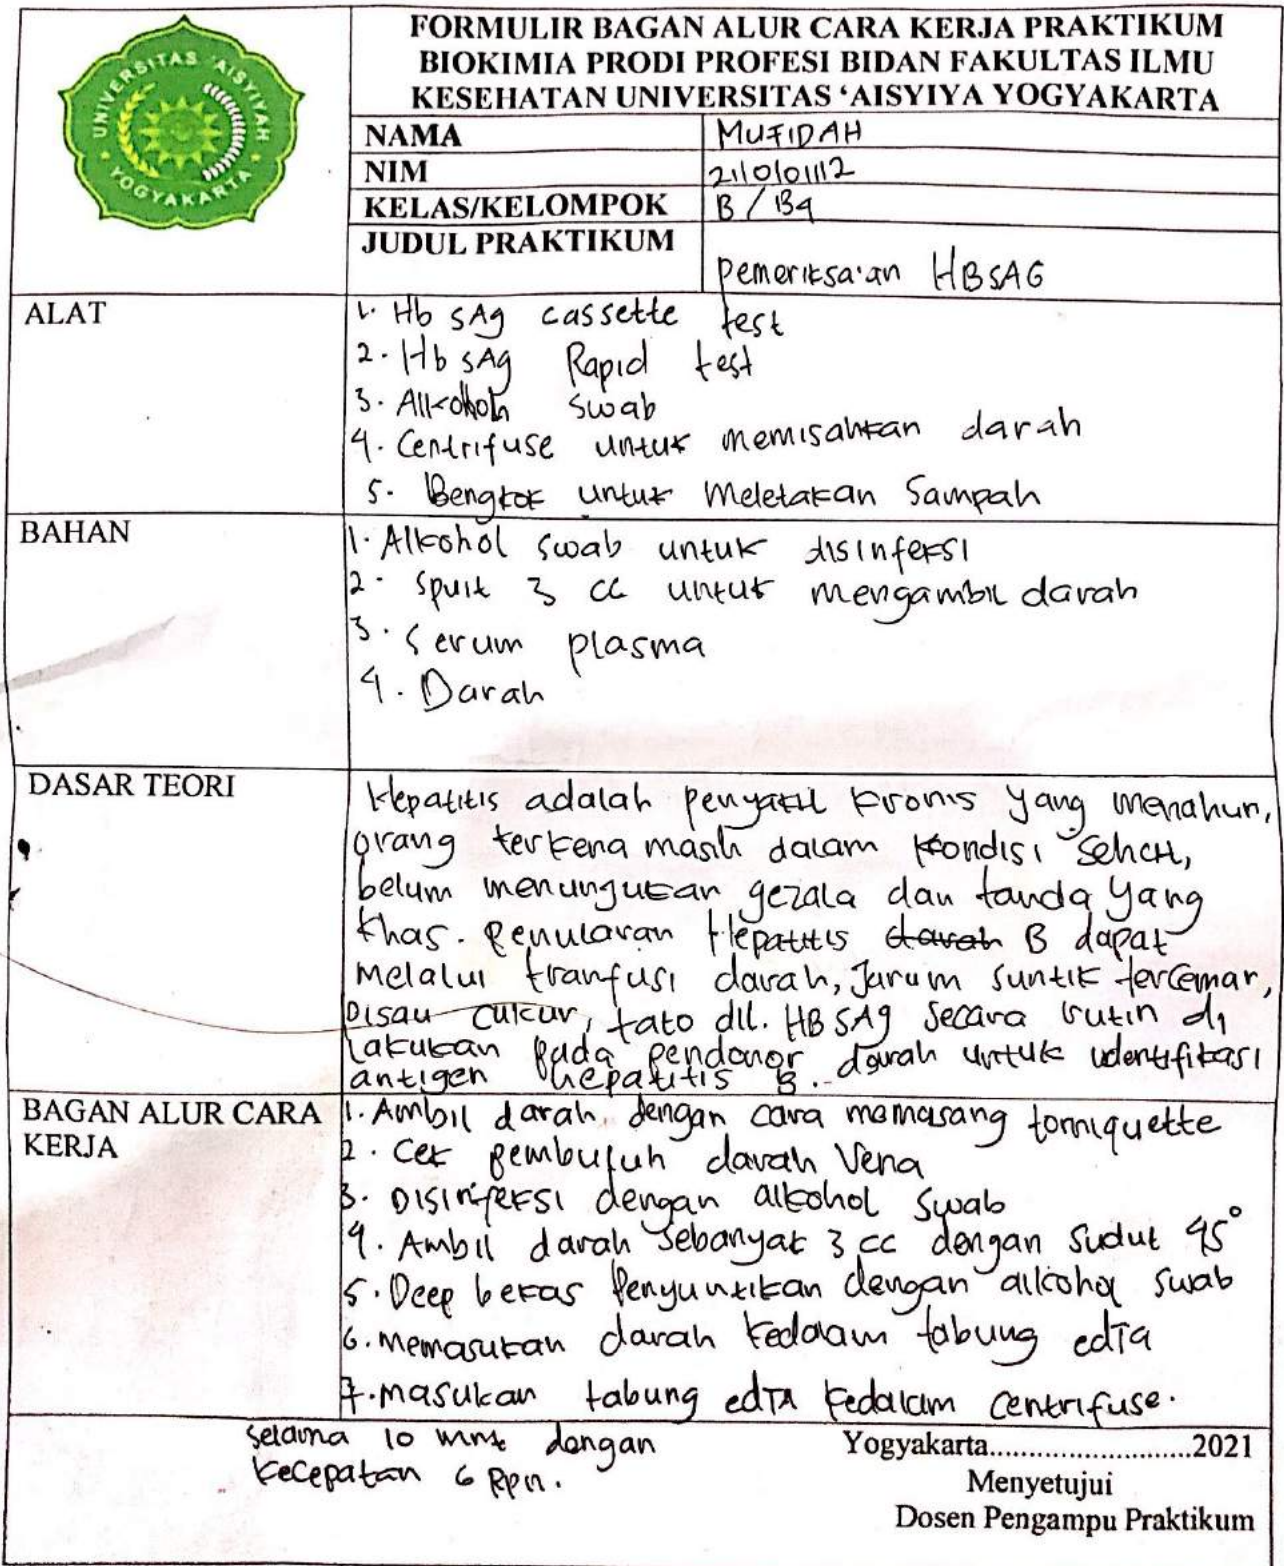 UNIVERSITAS 'AISYIYAH
YOGYAKARTA
FORMULIR BAGAN ALUR CARA KERJA PRAKTIKUM
BIOKIMIA PRODI PROFESI BIDAN FAKULTAS ILMU
KESEHATAN UNIVERSITAS 'AISYIYA YOGYAKARTA
NAMA MUFIDAH
NIM 2110101112
KELAS/KELOMPOK B / B4
JUDUL PRAKTIKUM
Pemeriksa'an HBSAG
ALAT
1. Hb sAg cassette test
2. Hb sAg Rapid test
3. Alkohol swab
4. Centrifuse untuk memisahkan darah
5. Bengkok untuk Meletakan Sampah
BAHAN
1. Alkohol swab untuk disinfeksi
2. Spuit 3 cc untuk mengambil darah
3. Serum plasma
4. Darah
DASAR TEORI
Hepatitis adalah penyakil kronis yang menahun,
orang terkena masih dalam kondisi sehat,
belum menunjukan gejala dan tanda yang
khas. Penularan Hepatitis darah B dapat
melalui tranfusi darah, Jarum suntik tercemar,
Pisau cukur, tato dll. HBSAg secara rutin di
lakukan pada pendonor darah untuk identifikasi
antigen hepatitis B.
BAGAN ALUR CARA
KERJA
1. Ambil darah dengan cara memasang torniquette
2. Cek pembuluh darah Vena
3. Disinfeksi dengan alkohol swab
4. Ambil darah sebanyak 3 cc dengan sudut 45°
5. Deep bekas Penyuntikan dengan alkohol swab
6. memasukan darah kedalam tabung edTa
7. masukan tabung edTA kedalam centrifuse.
selama 10 mnt dengan
kecepatan 6 Rpm.
Yogyakarta..........................2021
Menyetujui
Dosen Pengampu Praktikum